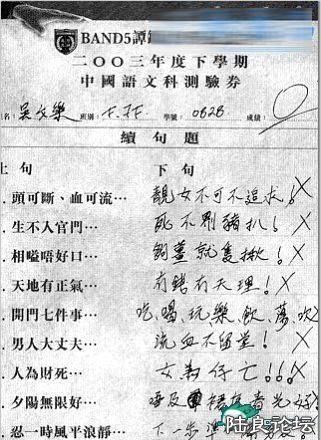 BAND5譚
二〇〇三年度下學期
中國語文科測驗劵
姓名：吳文樂 班別：F.3F 學號：0626 成績：0
續句題
上句 下句
．頭可斷、血可流… 靚女不可不追求！X
．生不入官門… 死不剔豬扒！X
．相嗌唔好口… 就隻揪！X
．天地有正氣… 有錢有天理！X
．開門七件事… 吃、喝、玩、樂、飲、蕩、吹
．男人大丈夫… 流血不留堂！X
．人為財死… 女為仔亡！！！X
．夕陽無限好… 唔及
．忍一時風平浪靜… 下一步
陆良论坛